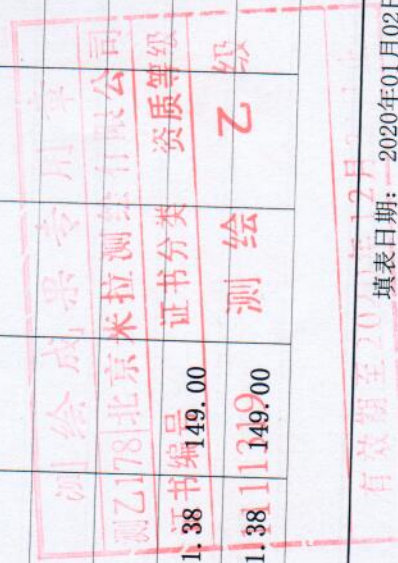 测绘成果专用章
测乙178 北京米拉测绘有限公司
证书编号 证书分类 资质等级
1111319 测绘 乙级
有效期至20
年12月
1.38 149.00
1.38 149.00
填表日期: 2020年01月02日